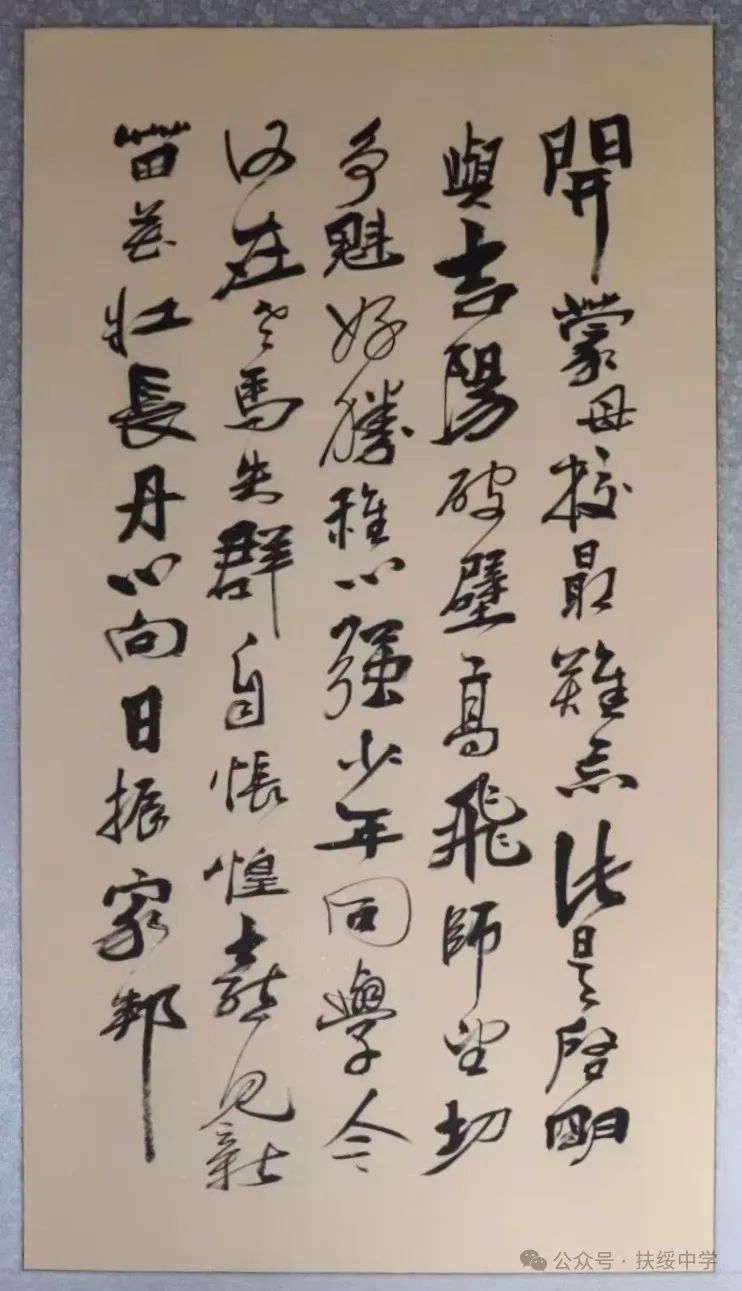 開蒙母校最難忘是啓明
與吉陽破壁高飛師望切
争魁好勝稚心强少年同學今
何在老馬失群自悵惶喜見新
苗茁壯長丹心向日振家邦
公众号·扶绥中学